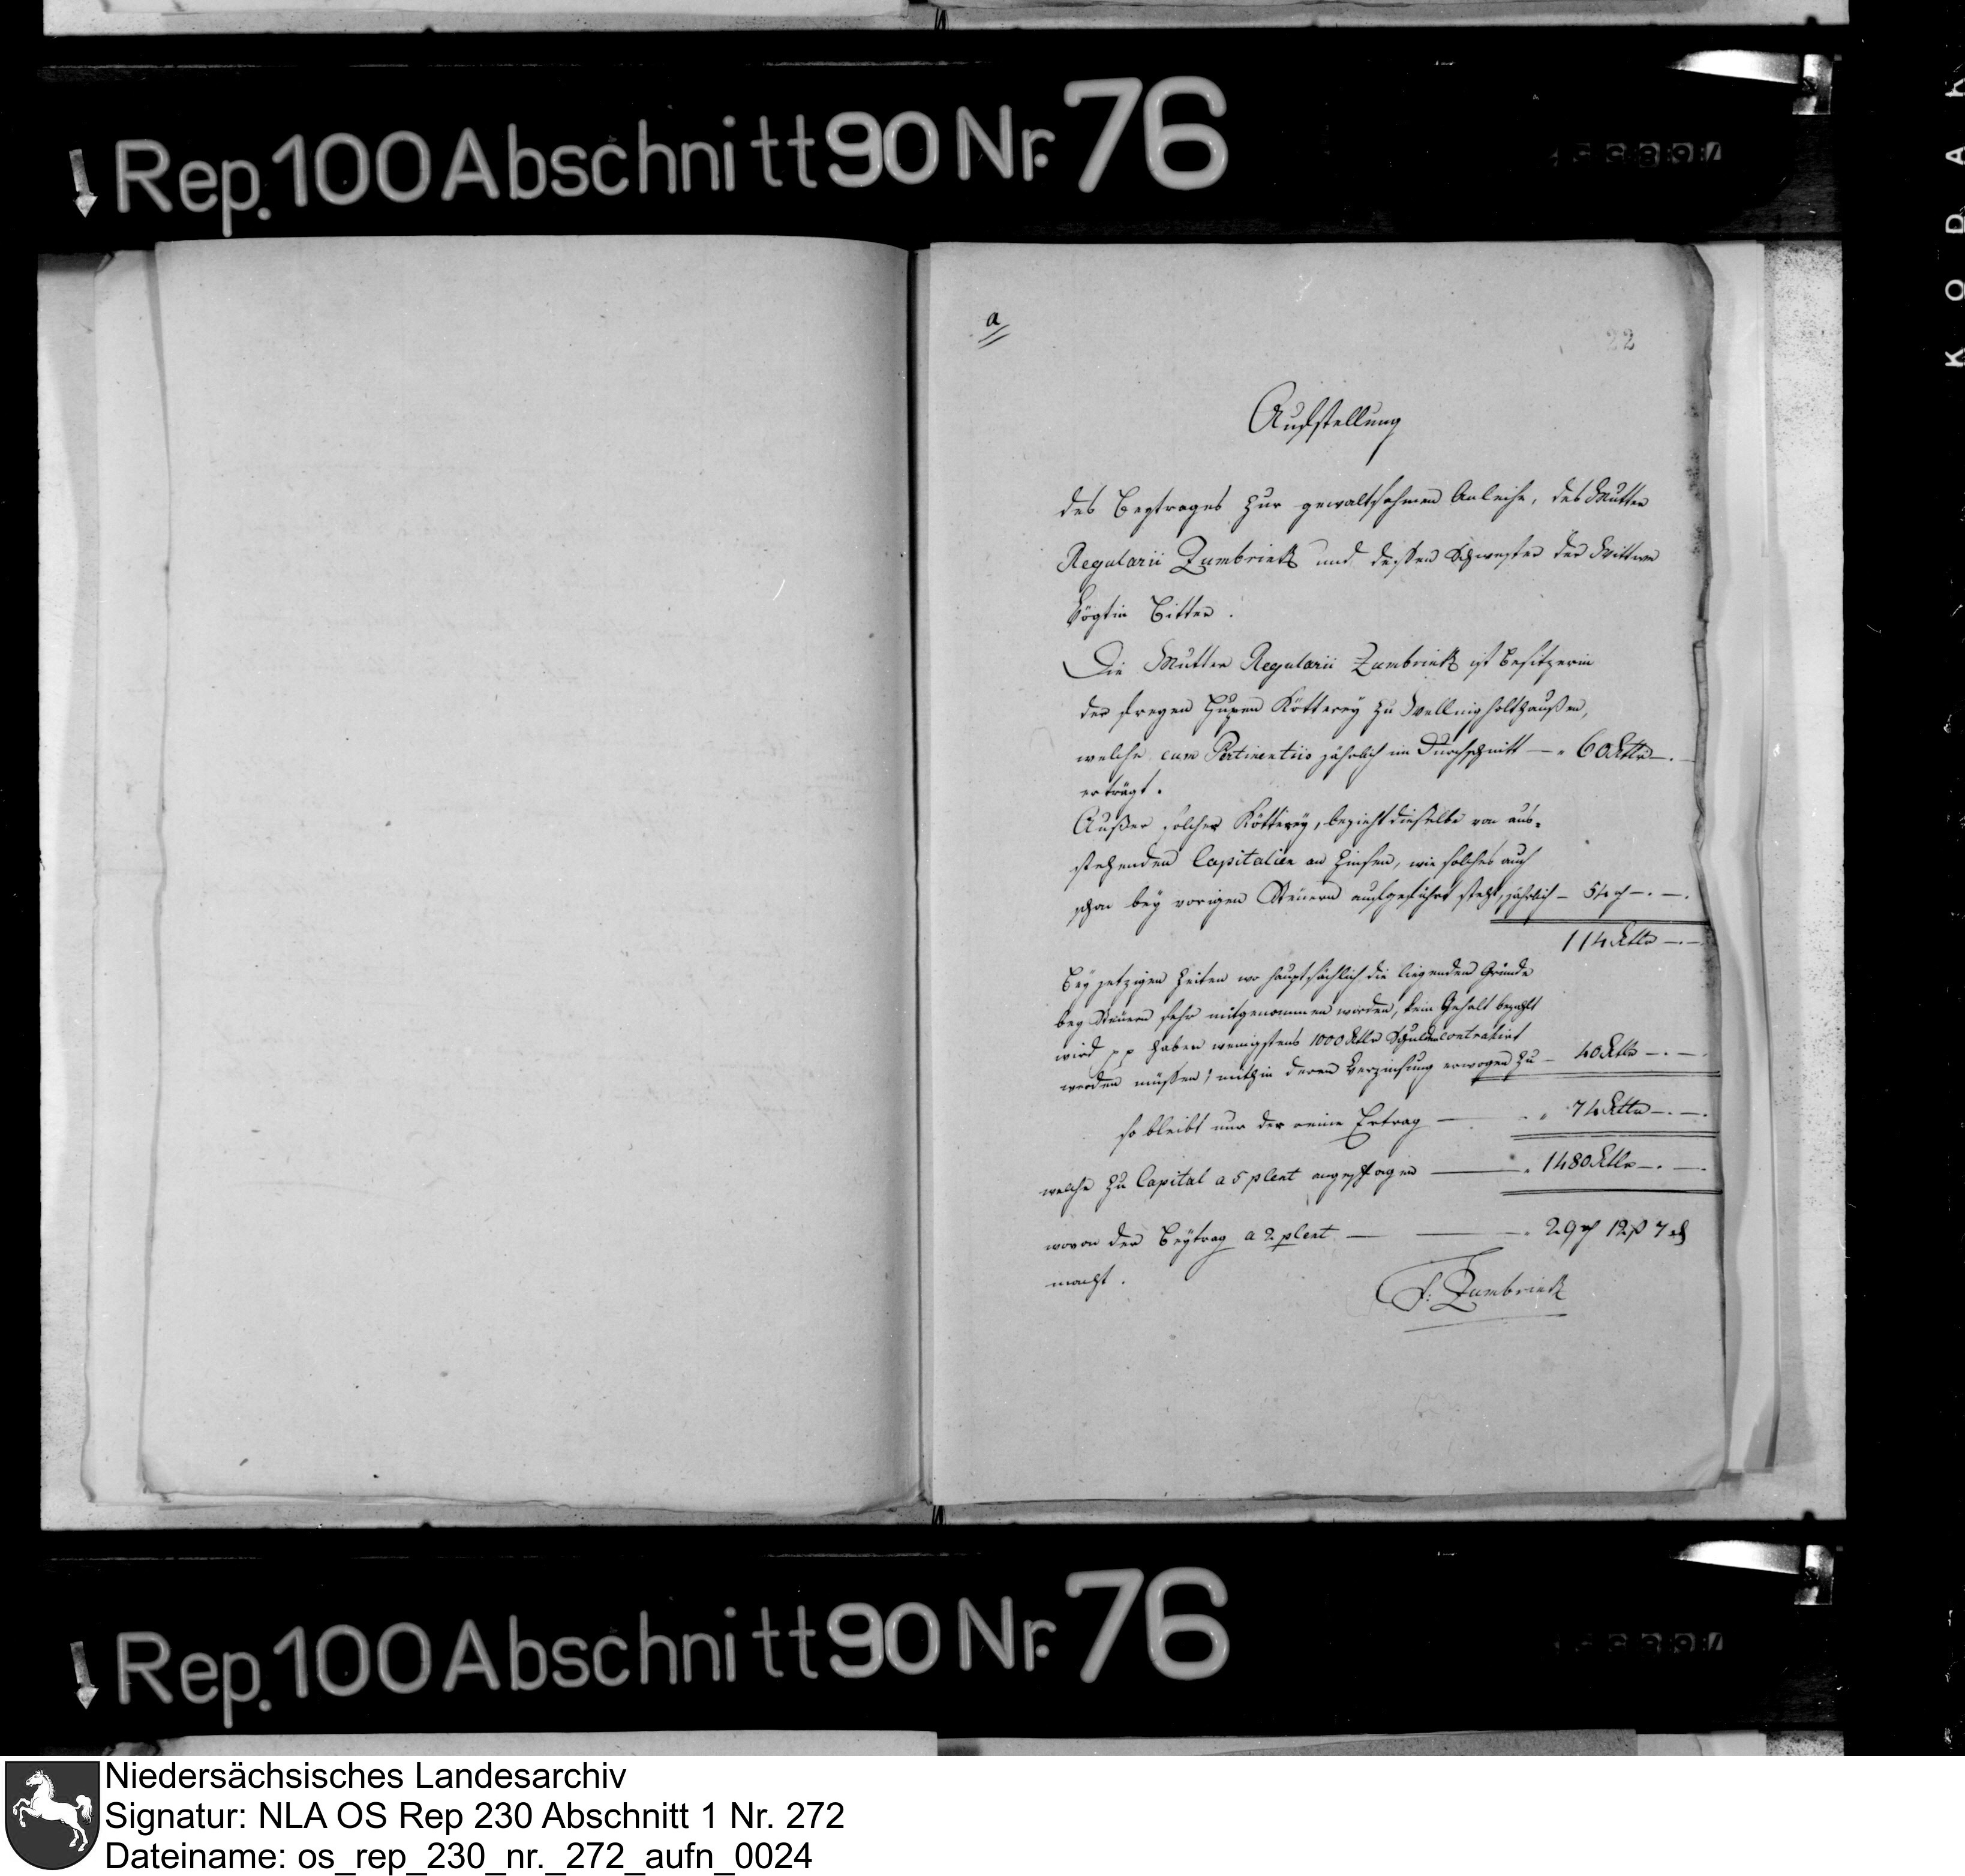 Rep. 100 Abschnitt 90 Nr. 76
KODAK
a
22
Aufstellung
des Beytrages zur gewaltsahmen Anleihe, des Mutter
Regularii Zumbrink und dessen Schwester der Wittwe
Vögtin Bitter.
Die Mutter Regularii Zumbrink ist Besitzerin
der freyen Kötterey zu Wellingholthaußen,
welche cum Pertinentiis jährlich im Durchschnitt — 60 Rtlr —.
erträgt.
Außer solcher Kötterey, bezieht dieselbe von aus-
stehenden Capitalien an Zinsen, wie solches auch
schon bey vorigen Steuern aufgeführt steht, jährlich — 54 —. —.
114 Rtlr —. —
Bey jetzigen Zeiten wo hauptsächlich die liegenden Gründe
bey Steuern sehr mitgenommen worden, kein Gehalt bezahlt
wird pp haben wenigstens 1000 Rtlr Schulden contrahirt
werden müssen, mithin deren Verzinsung erwogen zu — 40 Rtlr —. —
so bleibt nur der reine Ertrag — 74 Rtlr —. —.
welche zu Capital a 5 pCent angeschlagen — 1480 Rtlr —. —.
wovon der Beytrag a 2 pCent — 29 rt 12 ß 7 d
macht.
F. Zumbrink
Rep. 100 Abschnitt 90 Nr. 76
Niedersächsisches Landesarchiv
Signatur: NLA OS Rep 230 Abschnitt 1 Nr. 272
Dateiname: os_rep_230_nr._272_aufn_0024